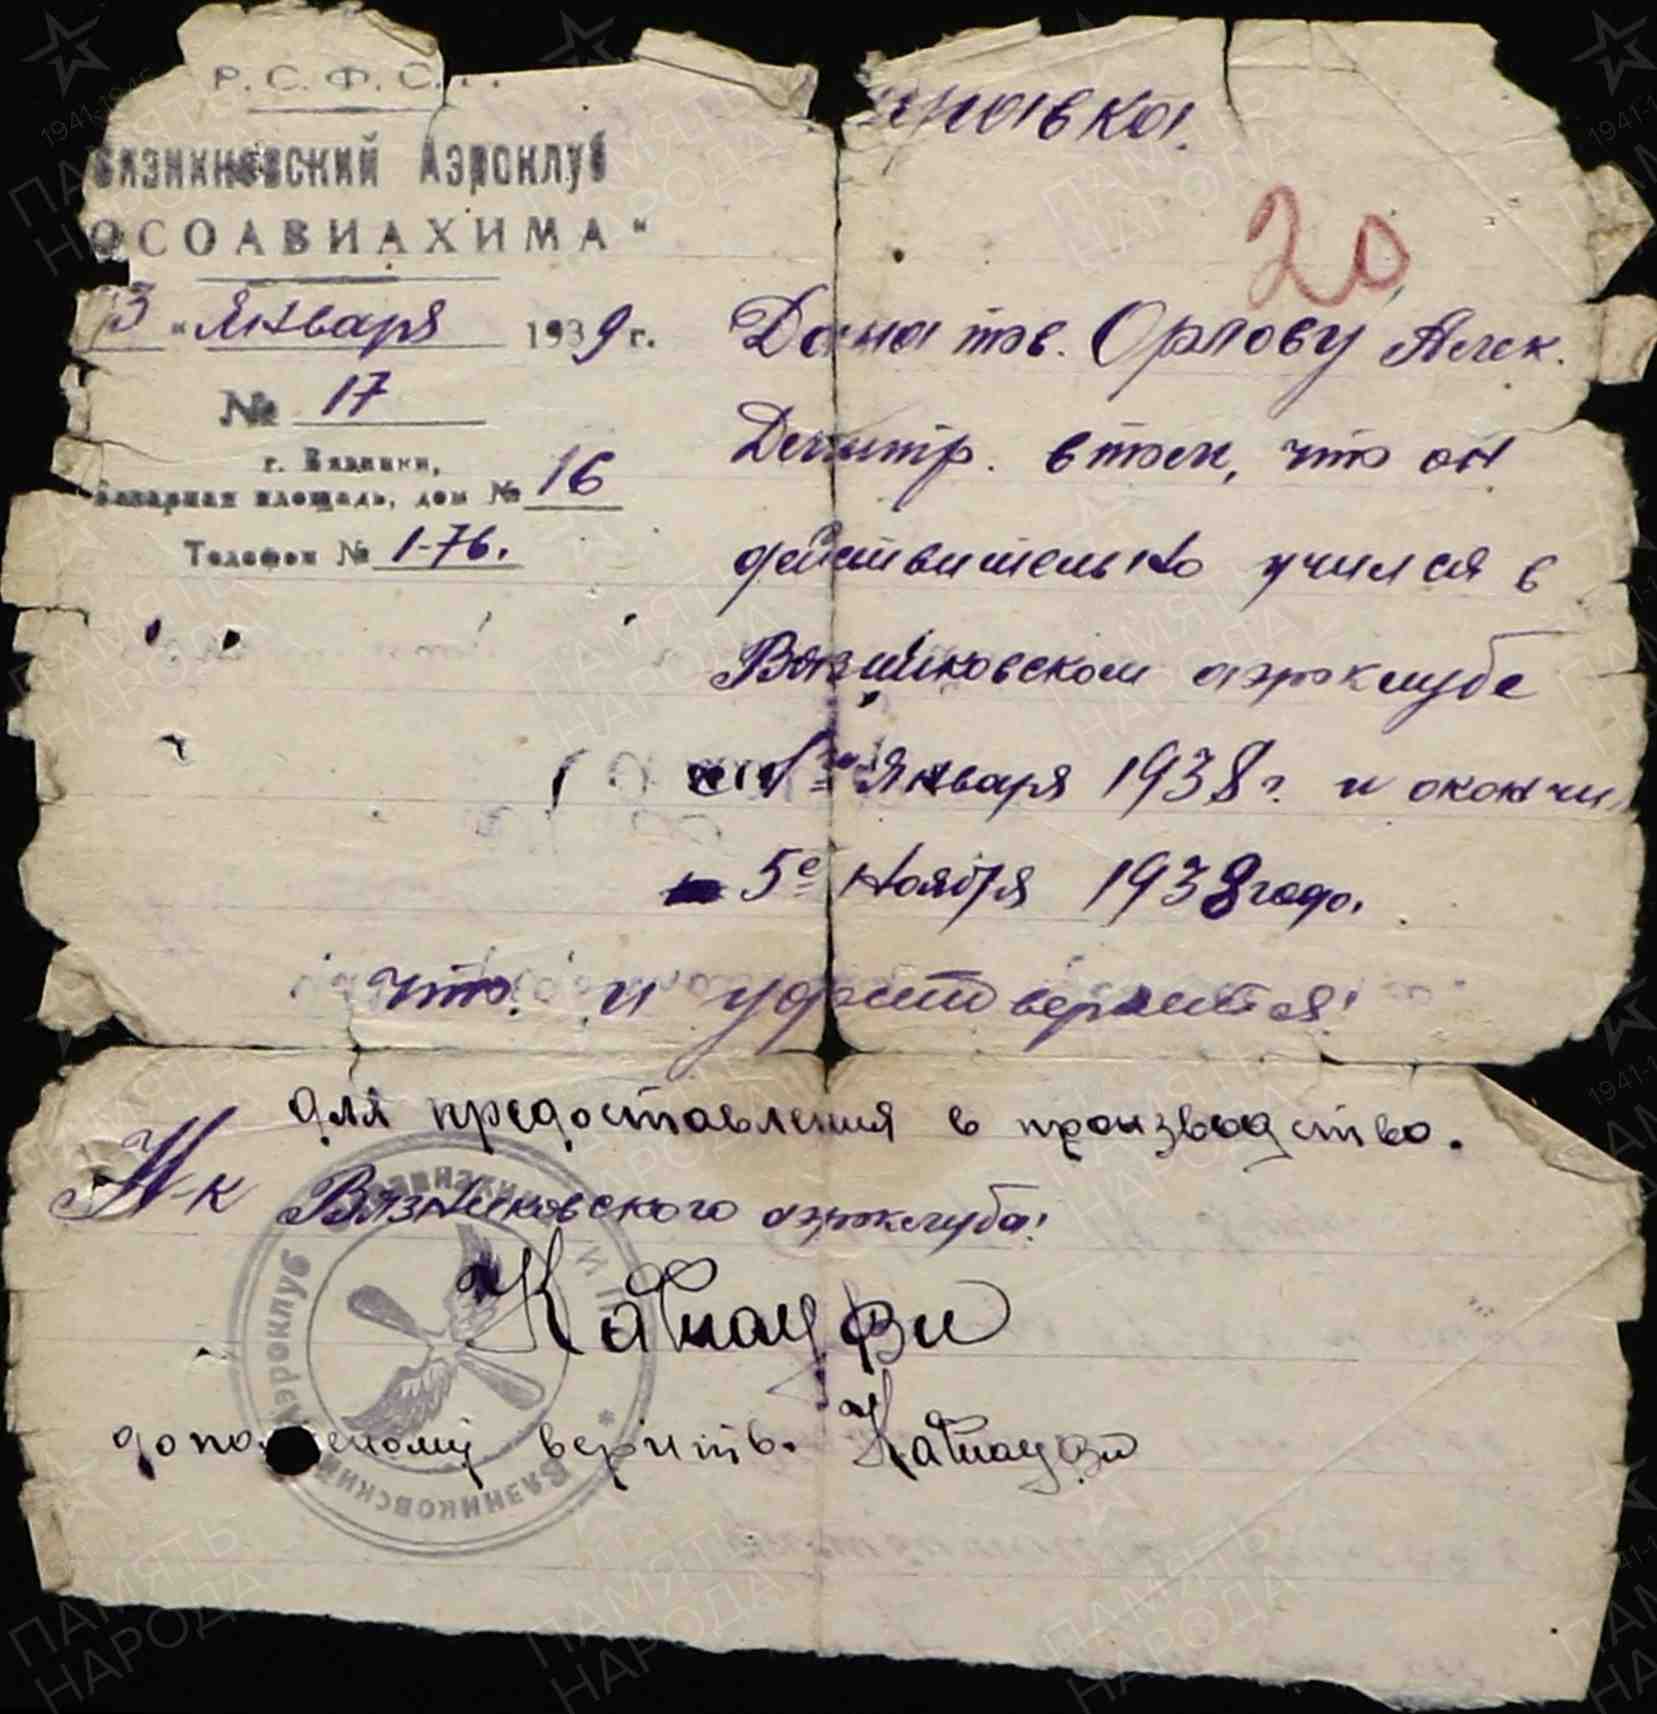 Р.С.Ф.С.
Вязниковский Аэроклуб
ОСОАВИАХИМА"
3 " Января 1939 г.
№ 17
г. Вязники,
Базарная площадь, дом № 16
Телефон № 1-76.
20
Дана тов. Орлову Алек.
Дмитр. в том, что он
действительно учился в
Вязниковском аэроклубе
Января 1938 г. и окончил
5е ноября 1938 года.
что и удостоверяется!
для предоставления в производство.
Н-к Вязниковского аэроклуба!
верить.
Вязниковский Аэроклуб
ПАМЯТЬ НАРОДА
1941-1945